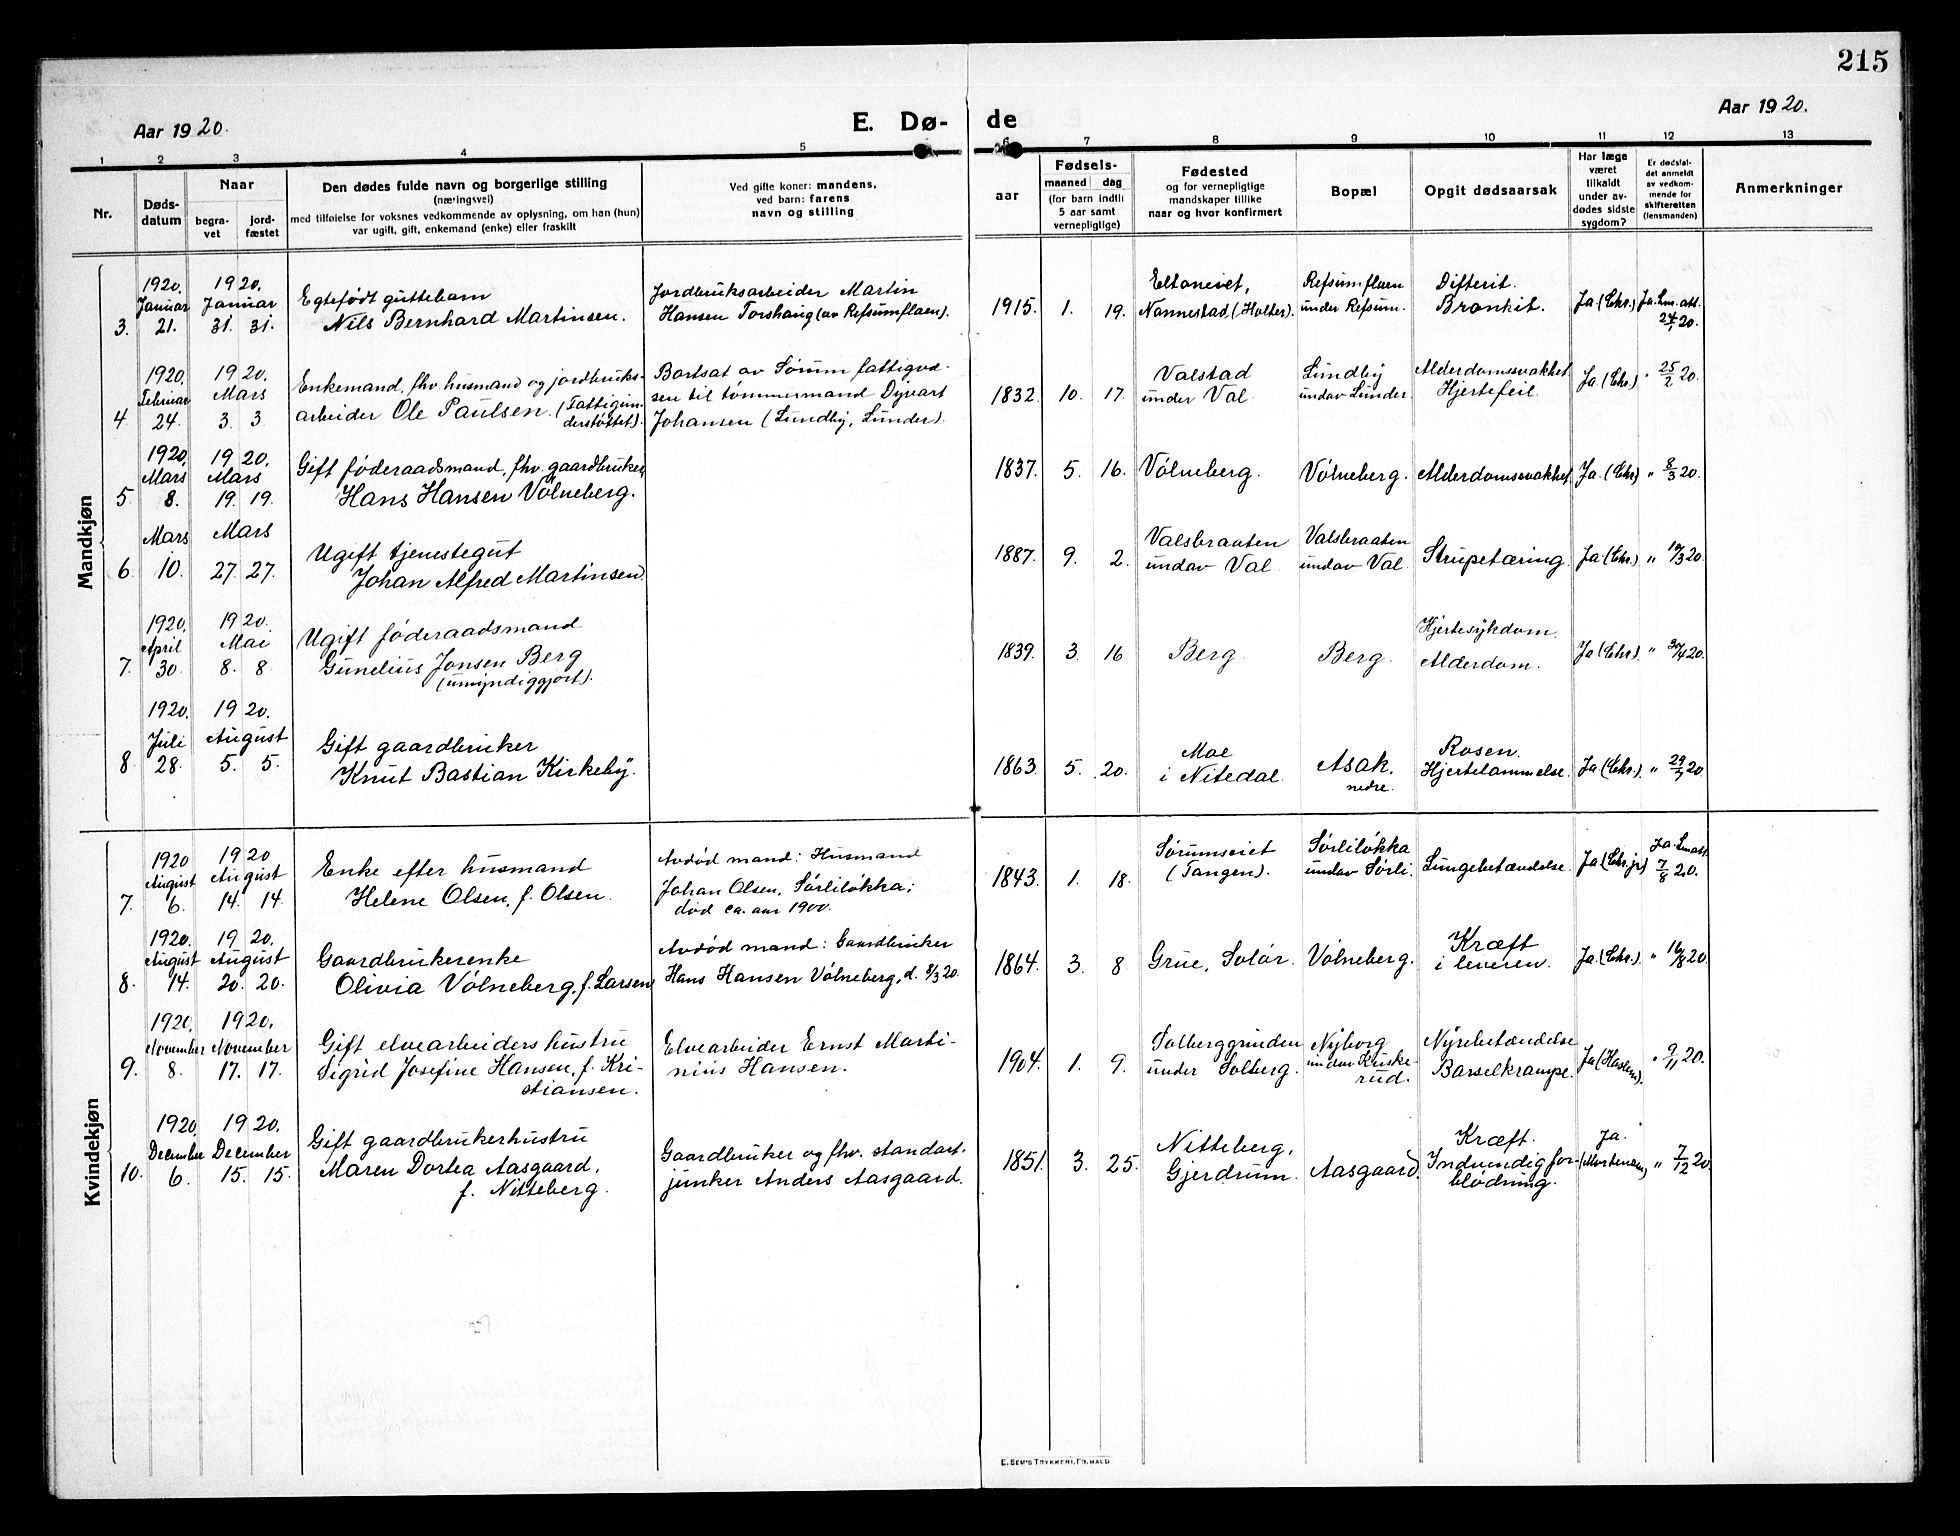 215
Aar 1920.
E. Dø-
de
Aar 1920.
1 2 3 4 5 6 7 8 9 10 11 12 13
Nr.
Døds-
datum
Naar
begra-
vet
jord-
fæstet
Den dødes fulde navn og borgerlige stilling
(næringsvei)
med tilføielse for voksnes vedkommende av oplysning, om han (hun)
var ugift, gift, enkemand (enke) eller fraskilt
Ved gifte koner: mandens,
ved barn: farens
navn og stilling
aar
Fødsels-
maaned dag
(for barn indtil
5 aar samt
vernepligtige)
Fødested
og for vernepligtige
mandskaper tillike
naar og hvor konfirmert
Bopæl
Opgit dødsaarsak
Har læge
været
tilkaldt
under av-
dødes sidste
sygdom?
Er dødsfal-
det anmeldt
av vedkom-
mende for
skifteretten
(lensmanden)
Anmerkninger
Mandkjøn
3.
1920.
Januar
21.
1920.
Januar
31. 31.
Egtefødt guttebarn
Nils Bernhard Martinsen.
Jordbruksarbeider Martin
Hansen Torshaug (av Refsumflaen).
1915. 1. 19.
Eltoneiet,
Nannestad, (Holter).
Refsumflaen
under Refsum.
Difterit.
Bronkit.
Ja (Chr.)
Ja. Lm. att.
24/1 20.
4.
1920.
Februar
24.
1920.
Mars
3. 3.
Enkemand, fhv. husmand og jordbruks-
arbeider Ole Paulsen. (Fattigun-
derstøttet).
Bortsat av Sørum fattigvæ-
sen til tømmermand Dyvart
Johansen (Lundby, Lunder).
1832. 10. 17.
Valstad
under Val.
Lundby
undav Lunder.
Alderdomssvakhet
Hjertefeil.
Ja (Chr.)
" 25/2 20.
5
1920.
Mars
8.
1920.
Mars
19. 19.
Gift føderaadsmand, fhv. gaardbruker,
Hans Hansen Vølneberg.
1837. 5. 16.
Vølneberg.
Vølneberg.
Alderdomssvakhet
Ja. (Chr.)
" 8/3 20.
6.
Mars
10.
Mars
27. 27.
Ugift tjenestegut
Johan Alfred Martinsen.
1887. 9. 2.
Valsbraaten
undav Val.
Valsbraaten
undav Val.
Strupetæring.
Ja (Chr.)
" 10/3 20.
7.
1920.
April
30.
1920.
Mai
8. 8.
Ugift føderaadsmand
Gunelius Jonsen Berg
(umyndiggjort).
1839. 3. 16
Berg.
Berg.
Hjertesykdom.
Alderdom.
Ja (Chr.)
" 30/4 20.
8.
1920.
Juli
28.
1920.
August
5. 5.
Gift gaardbruker
Knut Bastian Kirkeby.
1863. 5. 20.
Moe
i Nitedal.
Asak.
nedre.
Rosen.
Hjertelammelse.
Ja (Chr.)
" 29/7 20.
Kvindekjøn
7.
1920
August
6.
1920
August
14. 14.
Enke efter husmand
Helene Olsen, f. Olsen.
Avdød mand: Husmand
Johan Olsen, Sørliløkka;
død ca. aar 1900.
1843. 1. 18.
Sørumseiet
(Tangen).
Sørliløkka
undav Sørli.
Lungebetændelse.
Ja (Chr. jr)
Ja. Lm att.
7/8 20.
8.
1920.
August
14.
1920.
August
20. 20.
Gaardbrukerenke
Olivia Vølneberg, f. Larsen
Avdød mand: Gaardbruker
Hans Hansen Vølneberg, d. 8/3 20.
1864. 3. 8.
Grue, Solør.
Vølneberg.
Kræft
i leveren.
Ja. (Chr.)
" 16/8 20.
9.
1920.
November
8.
1920.
November
17. 17.
Gift elvearbeiders hustru
Sigrid Josefine Hansen, f. Kri-
stiansen.
Elvearbeider Ernst Marti-
nius Hansen.
1904. 1. 9.
Solberggrinden
under Solberg.
Nyborg
undav Kuske-
rud.
Nyrebetændelse
Barselkrampe.
Ja (Haslem).
" 9/11 20.
10.
1920.
December
6.
1920.
December
15. 15.
Gift gaardbrukerhustru
Maren Dortea Aasgaard,
f. Nitteberg.
Gaardbruker og fhv. standart-
junker Anders Aasgaard.
1851. 3. 25.
Nitteberg,
Gjerdrum.
Aasgaard.
Kræft.
Indvendig for-
blødning.
Ja.
" 7/12 20.
E. Sem's Trykkeri, Fr.hald